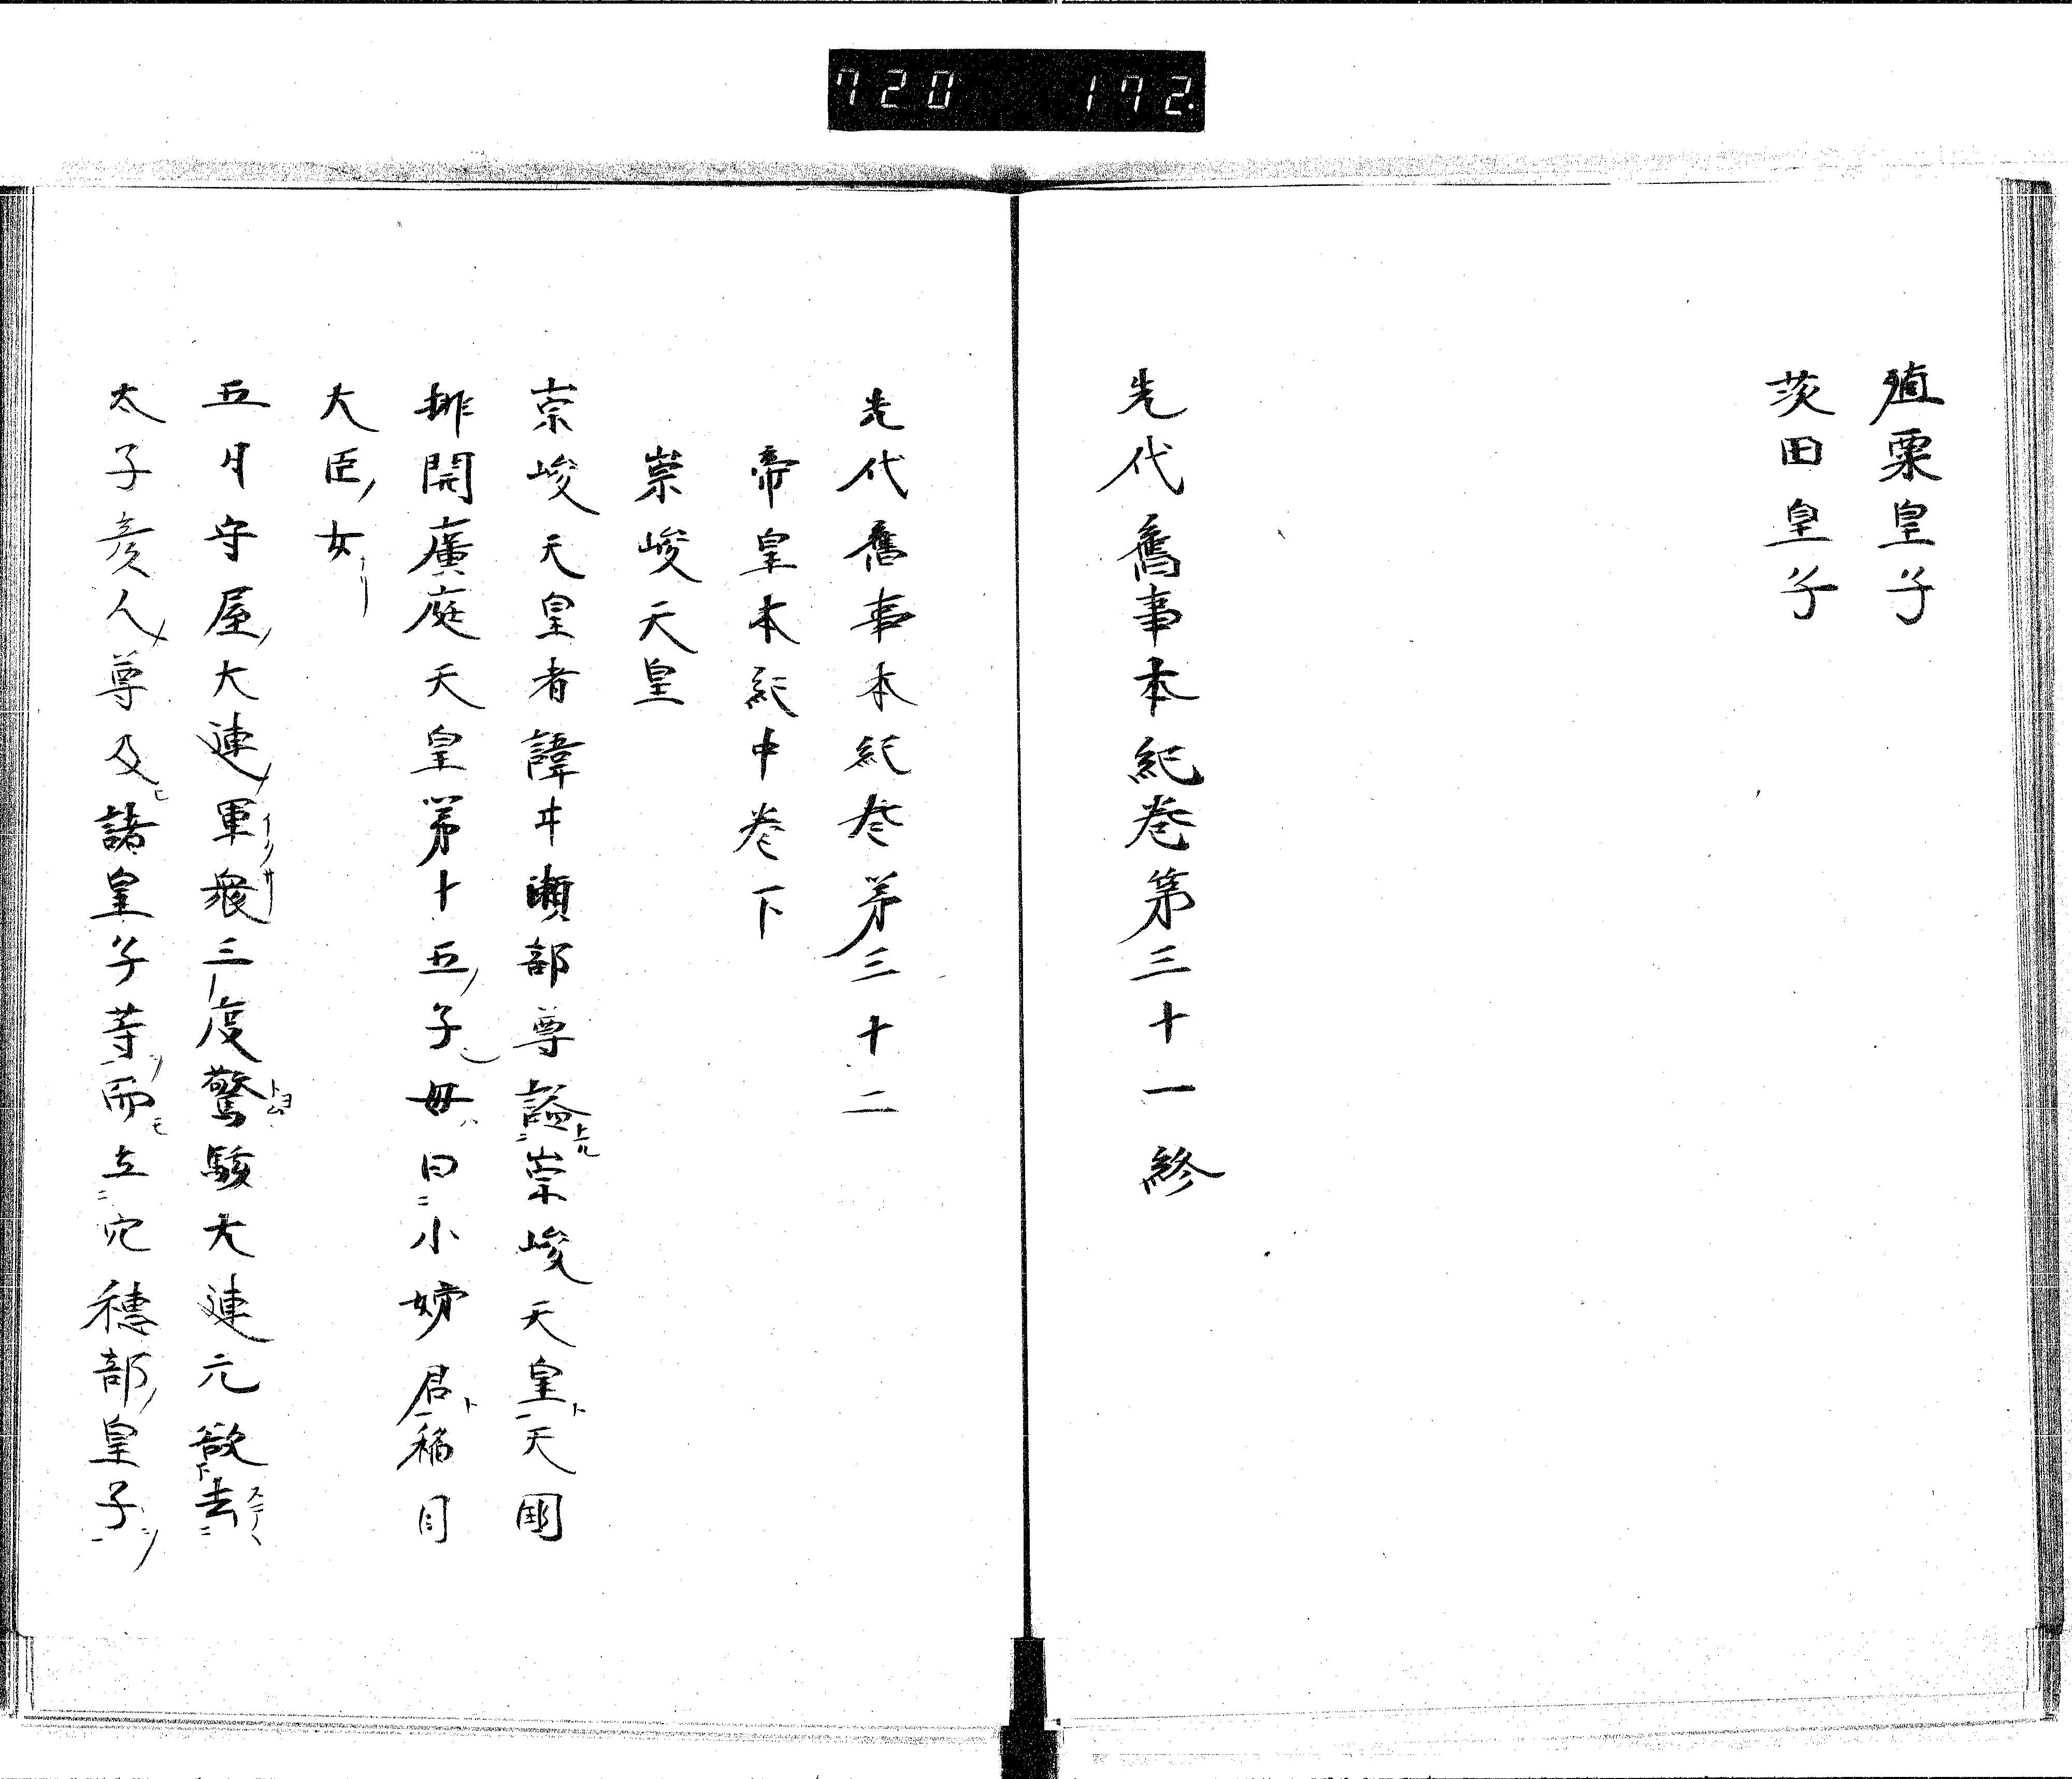 720 172
殖栗皇子
茨田皇子
先代舊事本紀巻第三十一終
先代舊事本紀巻第三十二
帝皇本紀中巻下
崇峻天皇
崇峻天皇者諱井瀬部尊諡崇峻天皇ト天國
排開廣庭天皇第十五ノ子也母ハ曰小姉君ト稲目
大臣ノ女ナリ
五月守屋ノ大連ノ軍衆三度驚駭大連元欲去
太子彦人ノ尊及ヒ諸皇子等ヲ而モ立穴穂部ノ皇子ヲ